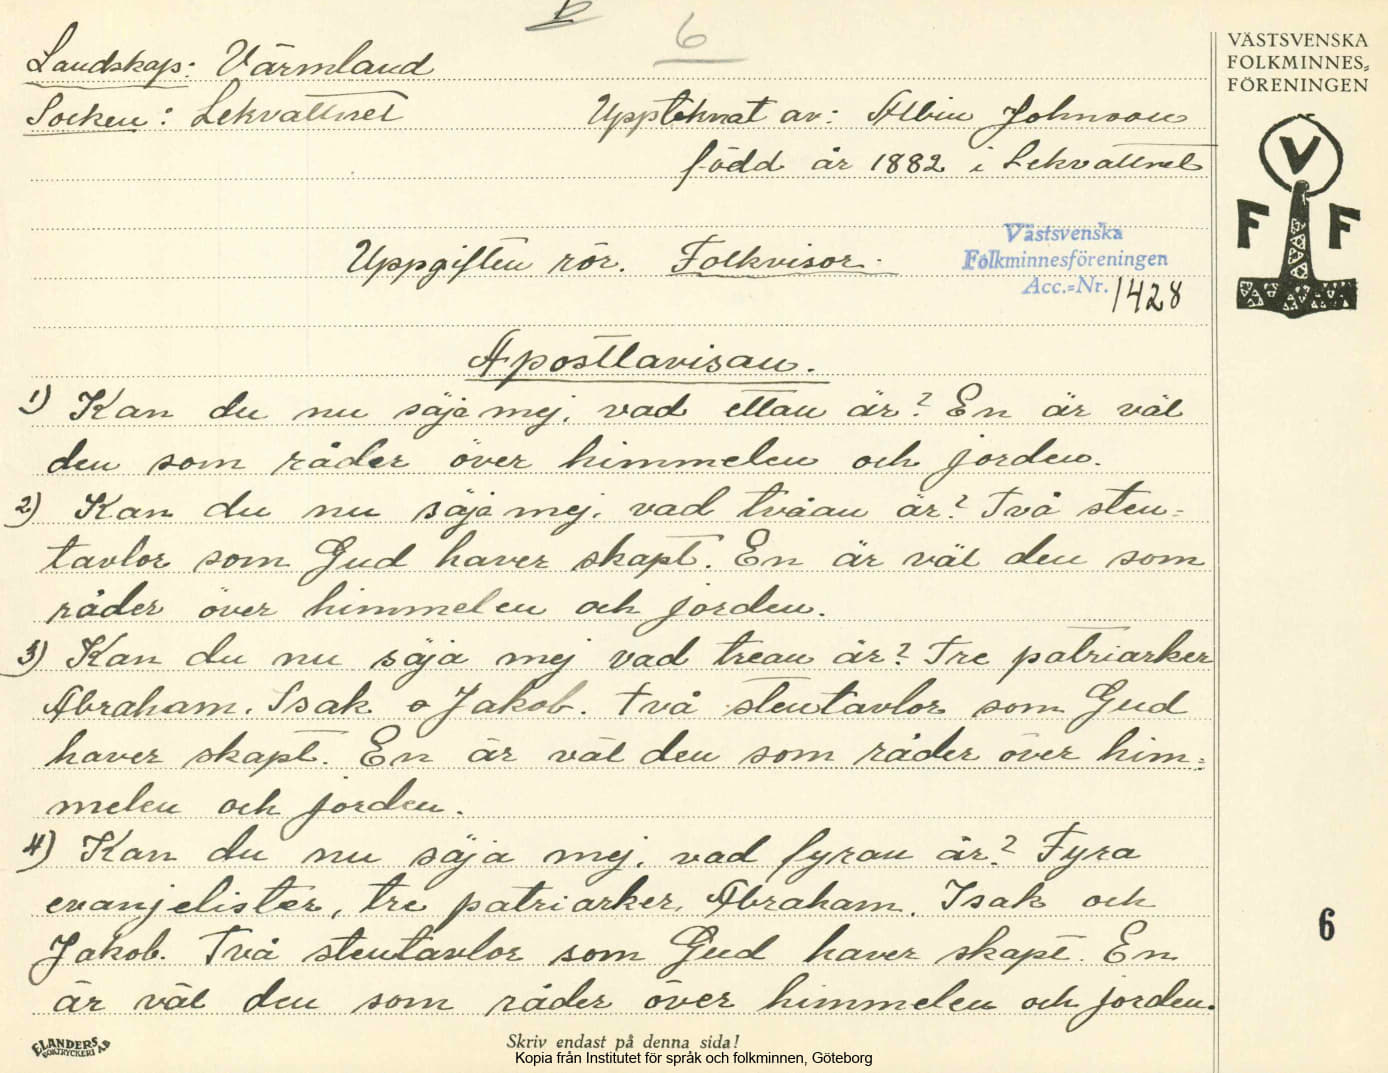 6
Landskap: Värmland
Socken: Lekvattnet
Uppteknat av: Albin Johnson
född år 1882 i Lekvattnet
VÄSTSVENSKA
FOLKMINNES=
FÖRENINGEN
V
F F
Uppgiften rör. Folkvisor.
Västsvenska
Folkminnesföreningen
Acc.=Nr. 1428
Apostlavisan.
1) Kan du nu säja mej, vad ettan är? En är väl
den som råder över himmelen och jorden.
2) Kan du nu säja mej, vad tvåan är? Två sten=
tavlor som Gud haver skapt. En är väl den som
råder över himmelen och jorden.
3) Kan du nu säja mej vad trean är? Tre patriarker
Abraham. Isak o Jakob. Två stentavlor som Gud
haver skapt. En är väl den som råder över him=
melen och jorden.
4) Kan du nu säja mej, vad fyran är? Fyra
evanjelister, tre patriarker, Abraham. Isak och
Jakob. Två stentavlor som Gud haver skapt. En
är väl den som råder över himmelen och jorden.
6
ELANDERS
BOKTRYCKERI AB
Skriv endast på denna sida!
Kopia från Institutet för språk och folkminnen, Göteborg